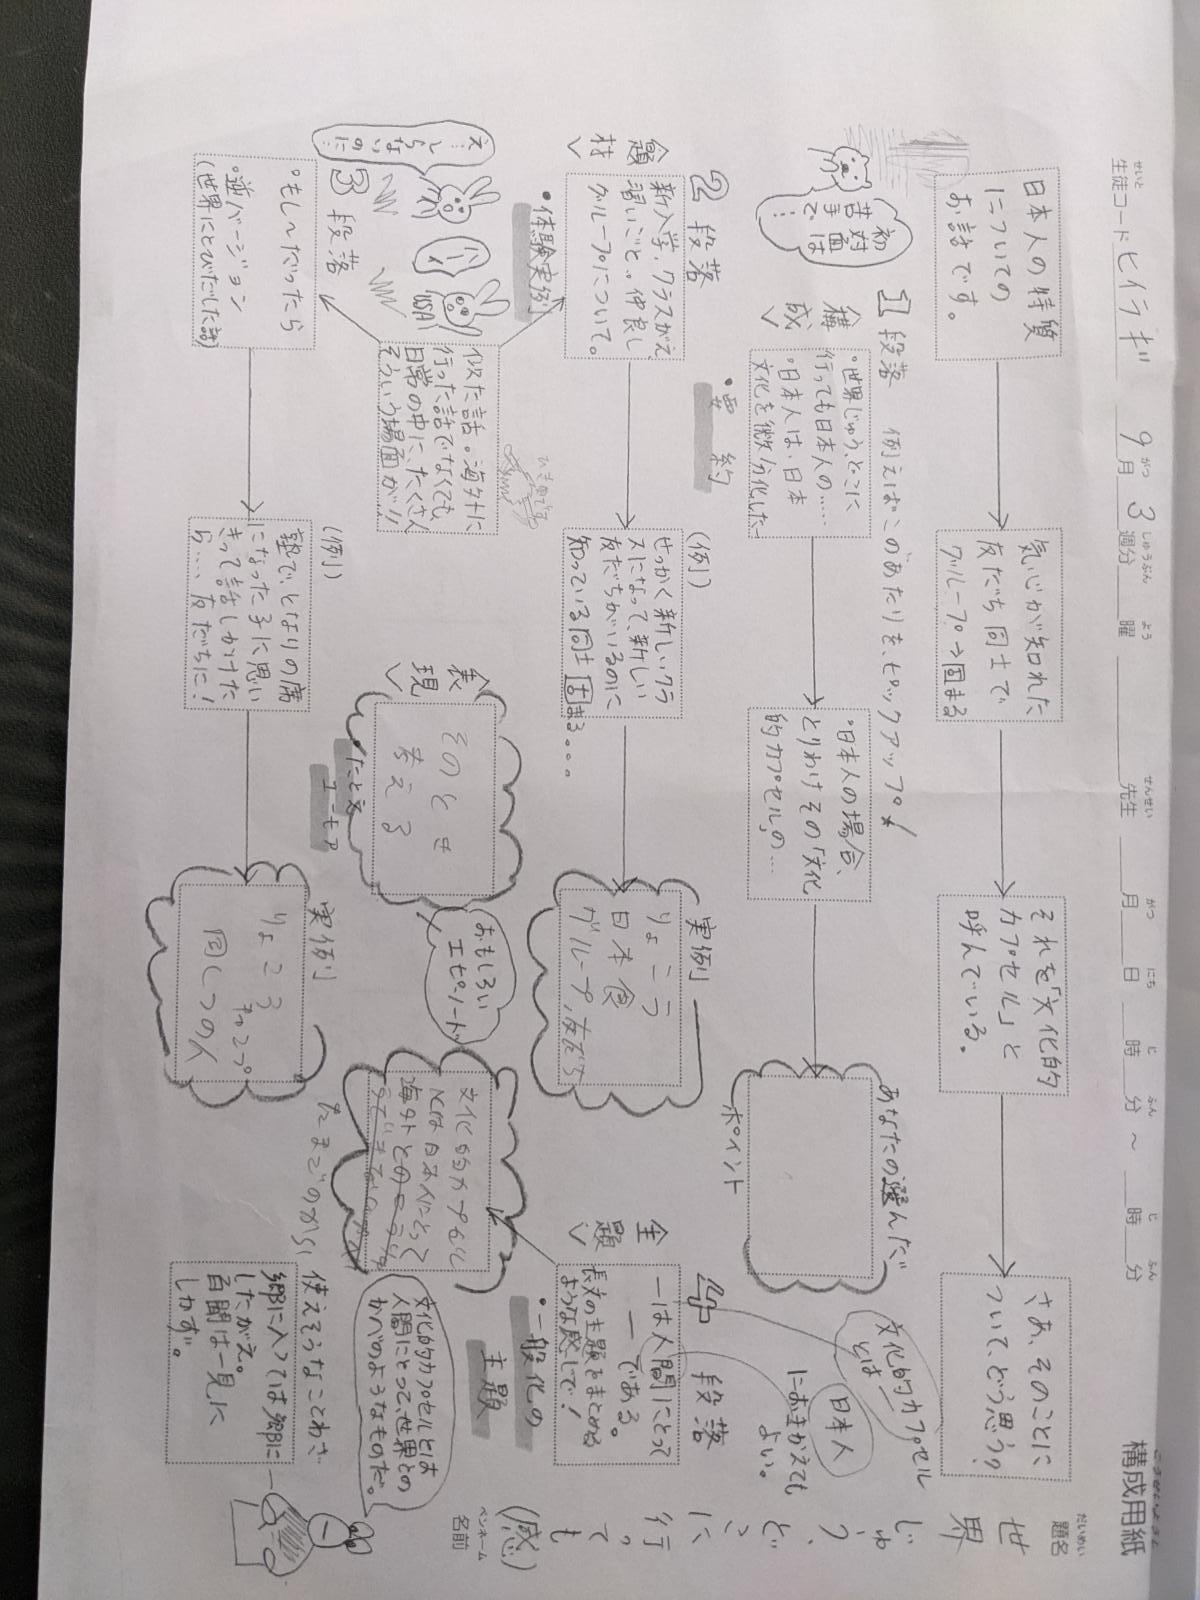 構成用紙
こうせいようし
せいと
生徒コード ヒイラギ 9月 3週分 曜 先生 月 日 時 分 ～ 時 分
がつ しゅうぶん よう せんせい がつ にち じ ふん じ ふん
だいめい
題名
世界じゅう、どこに行っても(感)
ペンネーム
名前
日本人の特質
についての
お話です。
気心が知れた
友だち同士で
グループ→固まる
それを「文化的
カプセル」と
呼んでいる。
さあ、そのことに
ついて、どう思う?
1段落 例えばこのあたりを、ピックアップ!
初対面は
苦手で…
<構成>
・世界じゅう、どこに
行っても日本人の……
・日本人は、日本
文化を微分化した
・日本人の場合、
とりわけその「文化
的カプセル」の…
あなたの選んだ
ポイント
・要約
2段落
<題材>
新入学、クラスがえ
習いごと。仲良し
グループについて。
・体験実例
(例)
せっかく新しいクラ
スになって、新しい
友だちがいるのに
知っている同士固まる。。。
実例
りょこう
日本食
グループ,友だち
4段落
<主題>
一は人間にとって
一である。
長文の主題をまとめる
ような感じで!
・一般化の
主題
文化的カプセル
とは
日本人
におきかえても
よい。
え…
しら
ないのに…
USA
似た話。海外に
行った話でなくても、
日常の中に、たくさん
そういう場面が!!
<表現>
そのとき
考える
・たとえ
ユーモア
おもしろい
エピソード
文化的カプセル
とは日本人にとって
海外との
文化的カプセルとは
人間にとって、世界との
かべのようなものだ。
3段落
・もし〜だったら
・逆バージョン
(世界にとびだした話)
(例)
塾で、となりの席
になった子に思い
きって話しかけた
ら…、友だちに!
実例
りょこう
キャンプ
同じつの人
たまごのから
使えそうなことわざ
郷に入っては郷に
したがえ。
百聞は一見に
しかず。